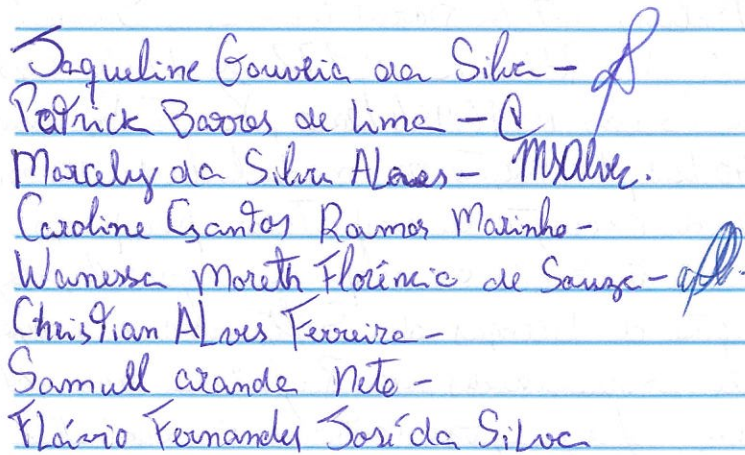 Jaqueline Gouveia da Silva -
Patrick Barros de Lima -
Marcely da Silva Alves - MSAlves.
Caroline Santos Ramos Marinho -
Wanessa Moreth Florêncio de Souza -
Christian ALves Ferreira -
Samuell Neto -
FLávio Fernandes José da SiLva